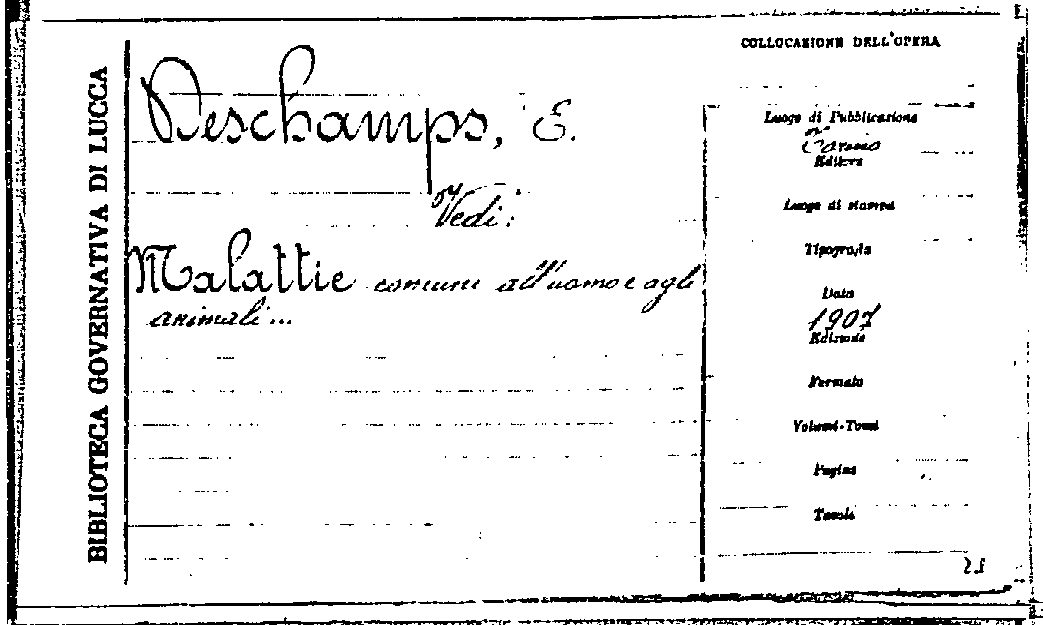 BIBLIOTECA GOVERNATIVA DI LUCCA
Deschamps, E.
Vedi:
Malattie comuni all'uomo e agli
animali...
COLLOCAZIONE DELL'OPERA
Luogo di Pubblicazione
Torino
Editore
Luogo di stampa
Tipografia
Data
1907
Edizione
Formato
Volumi-Tomi
Pagine
Tavole